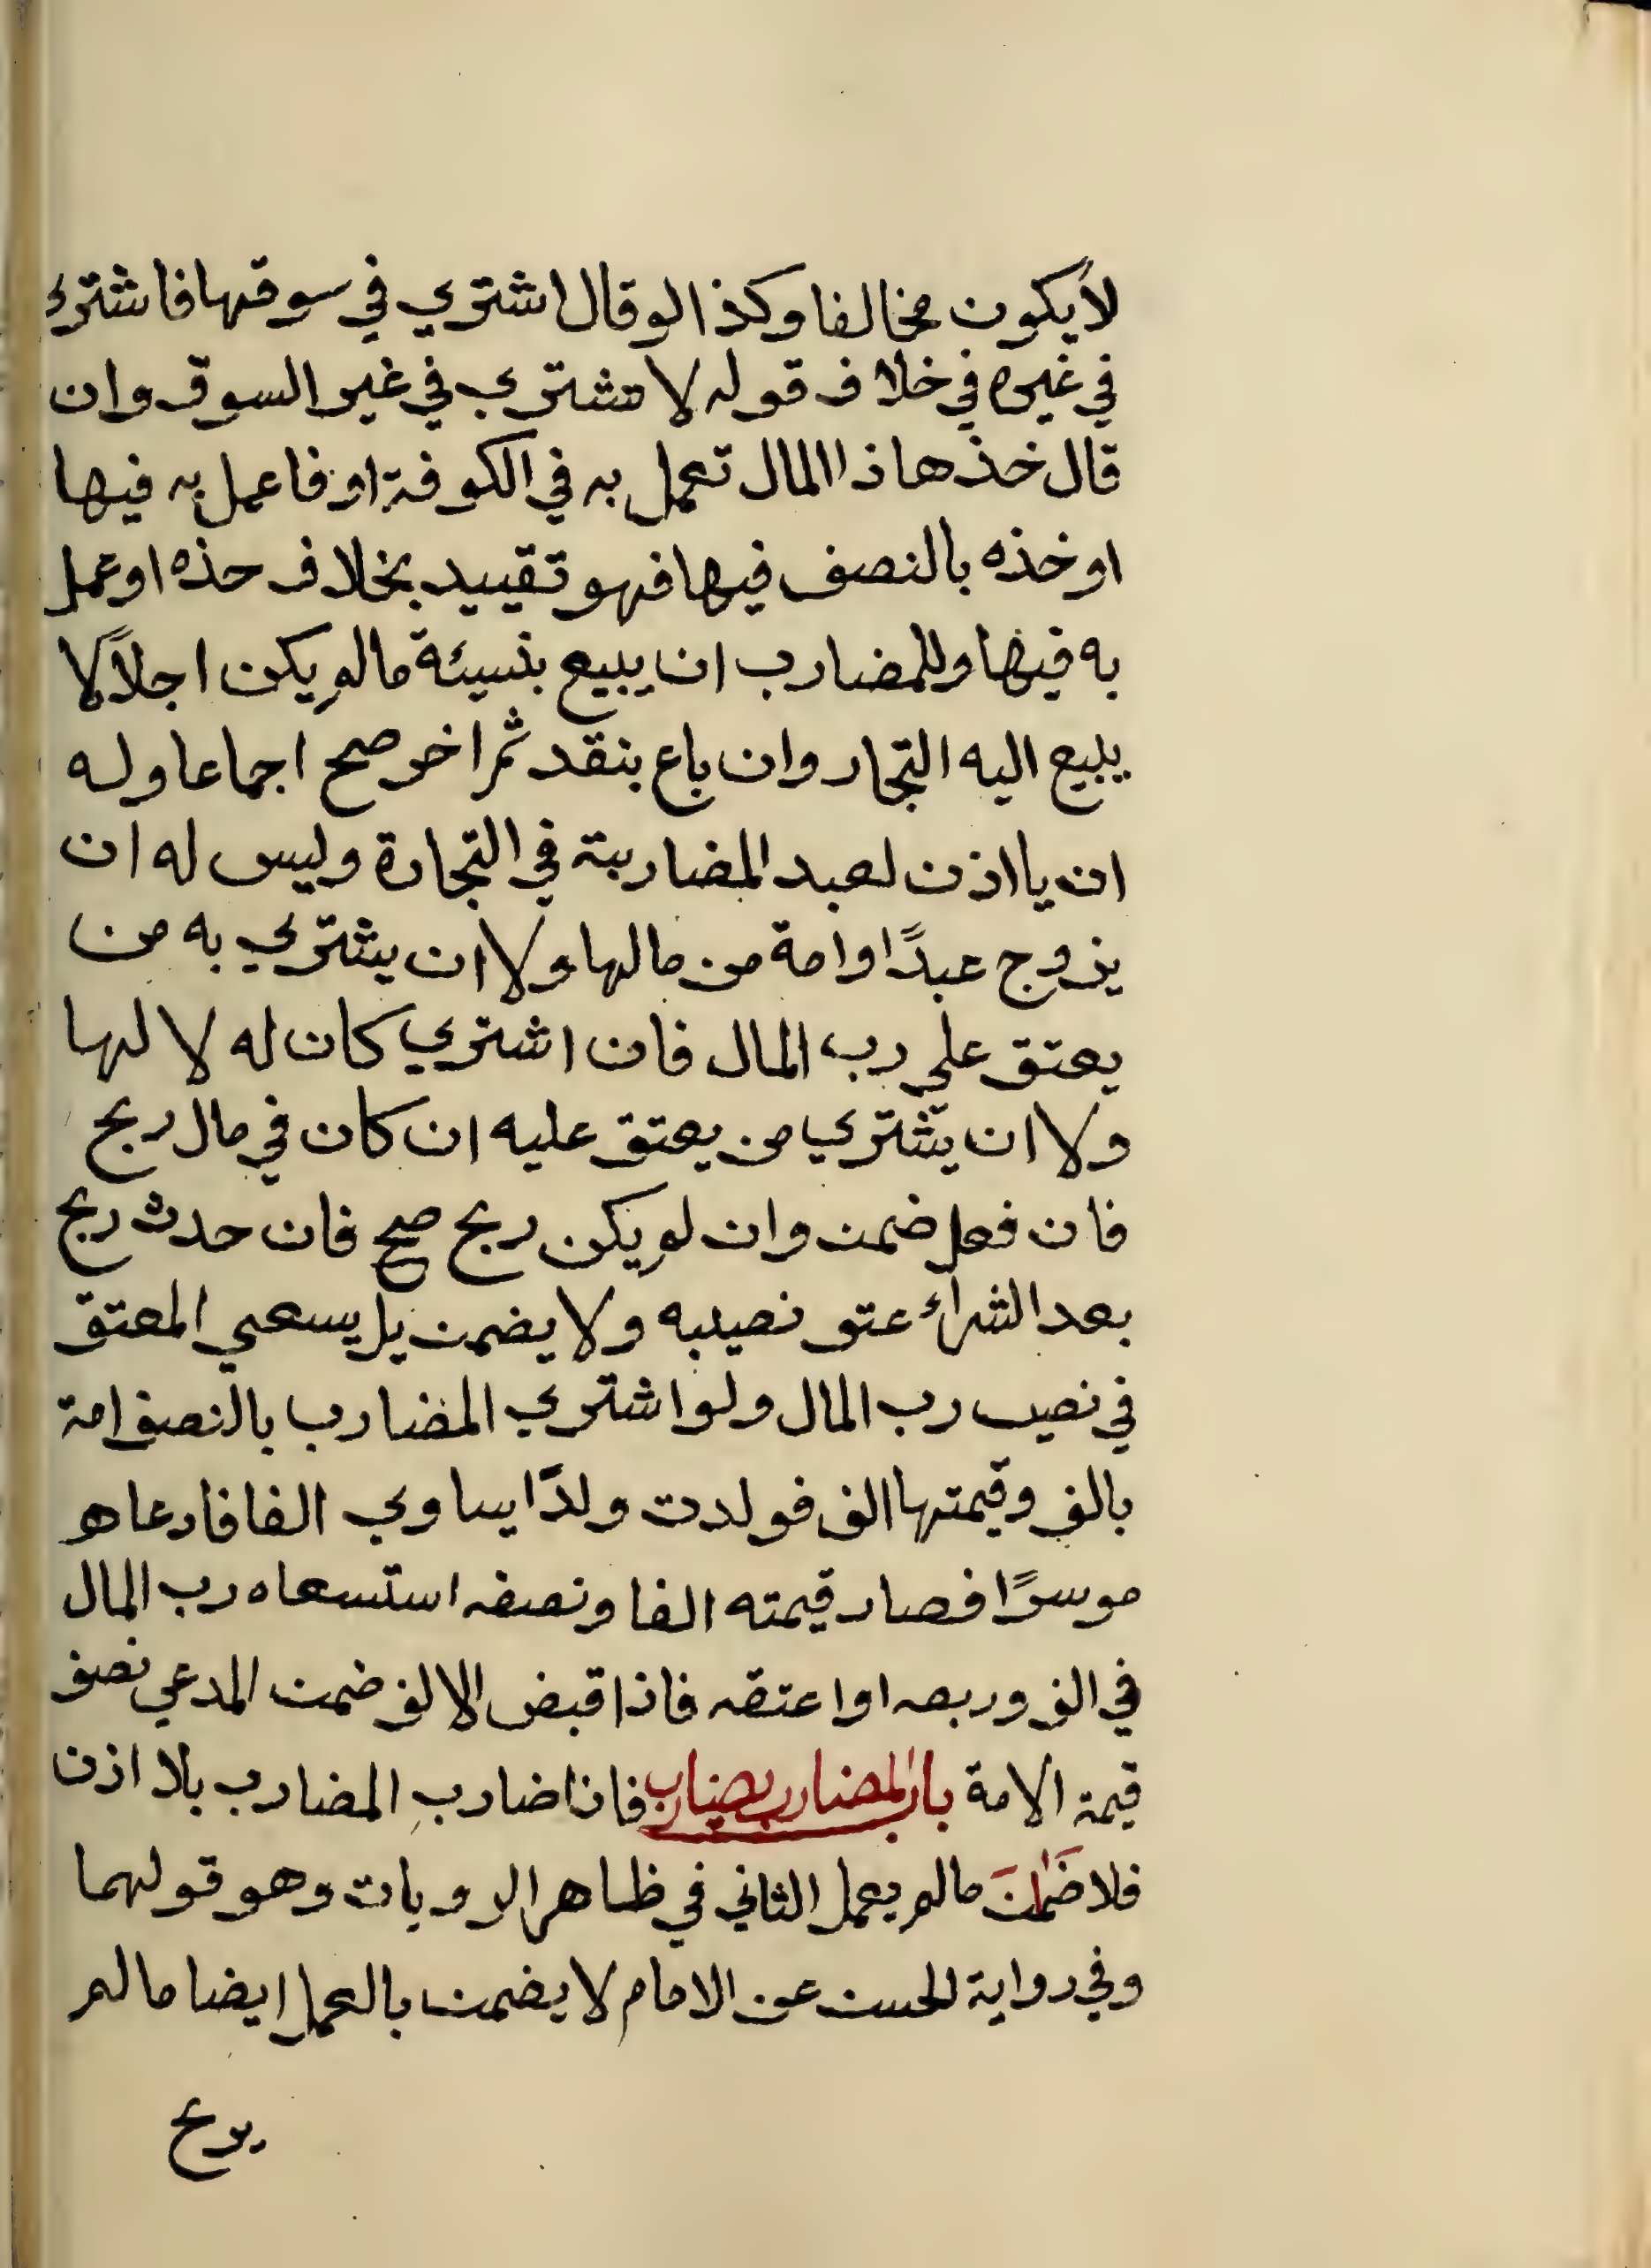 لا يكون مخالفا وكذا لو قال اشتري في سوقها فاشترى
في غيره في خلاف قوله لا تشتري في غير السوق وان
قال خذ هاذا المال تعمل به في الكوفة او فاعمل به فيها
او خذه بالنصف فيها فهو تقييد بخلاف حذه او عمل
به فيها وللمضارب ان يبيع بنسيئة مالم يكن اجلاً لا
يبيع اليه التجار وان باع بنقد ثم اخر صح اجماعا وله
ان يااذن لعبد المضاربة في التجارة وليس له ان
يزوج عبدًا او امة من مالها ولا ان يشتري به من
يعتق علي رب المال فان اشتري كان له لا لها
ولا ان يشتري من يعتق عليه ان كان في مال ربح
فان فعل ضمن وان لم يكن ربح صح فان حدث ربح
بعد الشراء عتق نصيبه ولا يضمن بل يسعي المعتق
في نصيب رب المال ولو اشتري المضارب بالنصف امة
بالف وقيمتها الف فولدت ولدًا يساوي الفا فادعاهو
موسرًا فصار قيمته الفا ونصفه استسعاه رب المال
في الف وربعه او اعتقه فاذا قبض الالف ضمن المدعي نصف
قيمة الامة باب المضارب يضارب فان اضارب المضارب بلا اذن
فلا ضمان مالم يعمل الثاني في ظاهر الرويات وهو قولهما
وفي رواية للحسن عن الامام لا يضمن بالعمل ايضا مالم
يربح